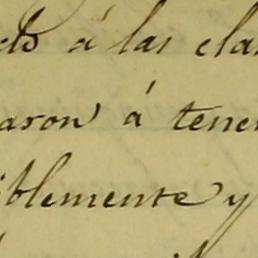 cto á las cla
aron á tener
iblemente y